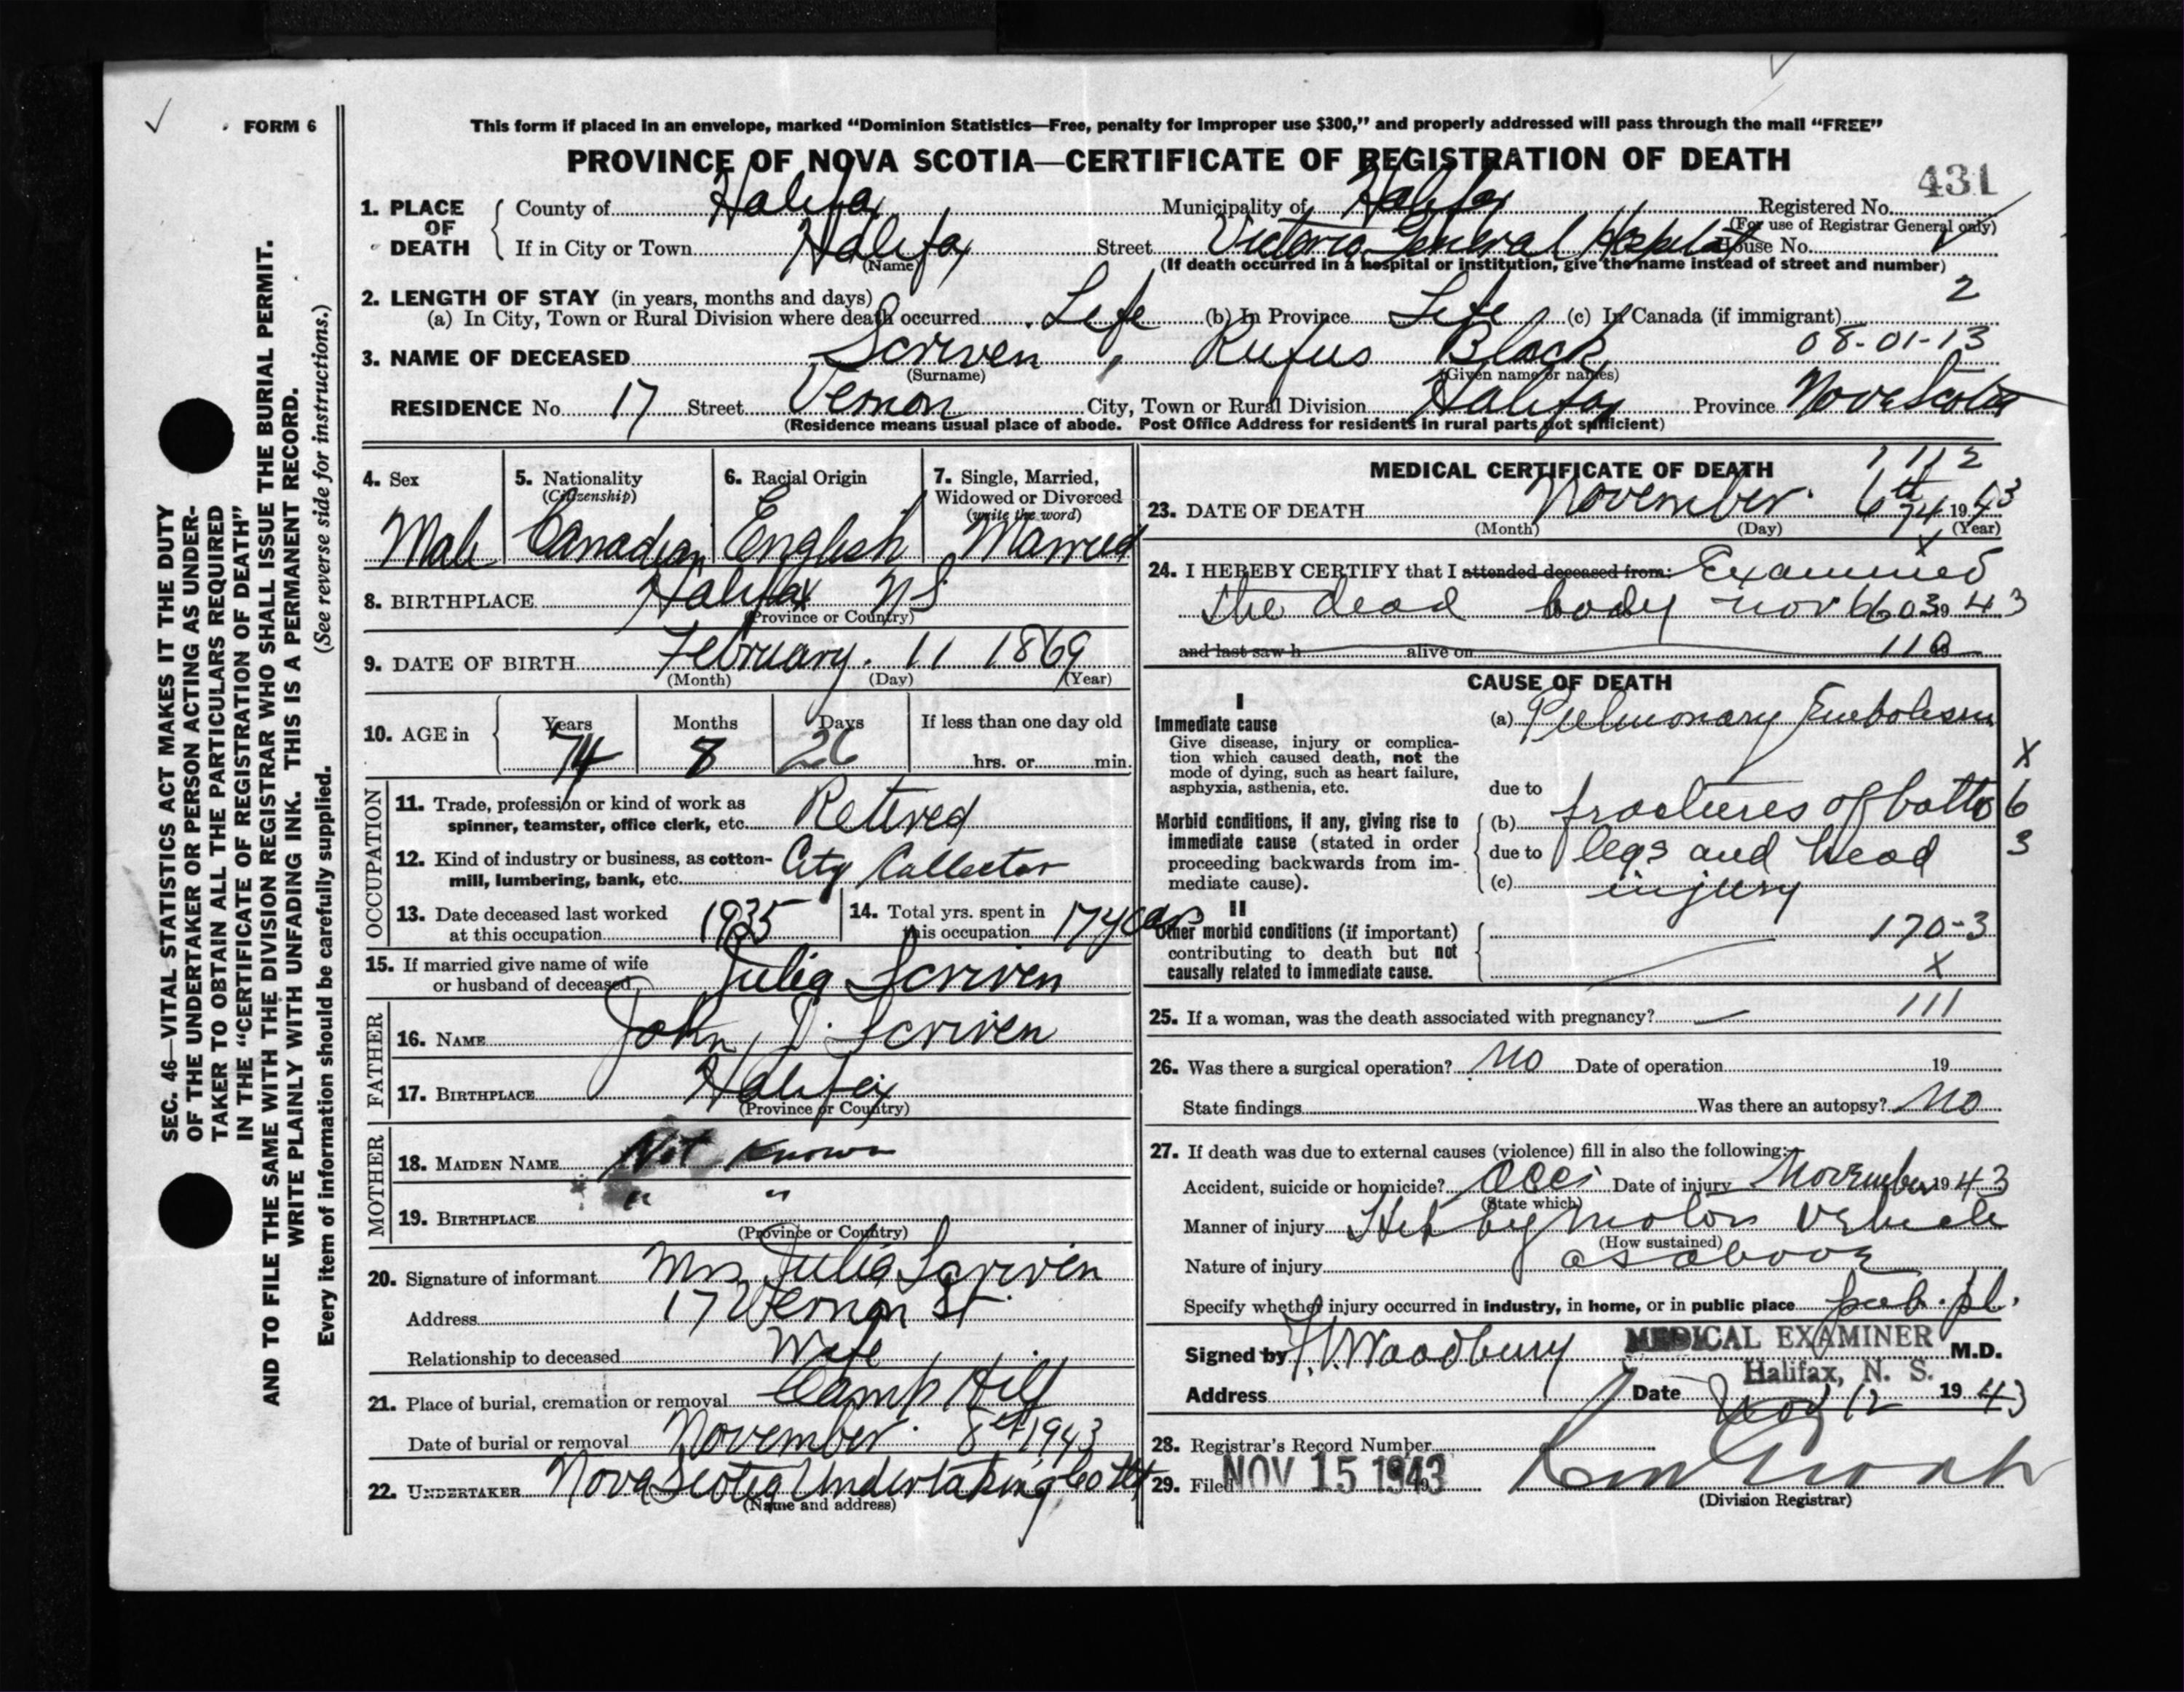 FORM 6
This form if placed in an envelope, marked “Dominion Statistics—Free, penalty for improper use $300,” and properly addressed will pass through the mail “FREE”
PROVINCE OF NOVA SCOTIA—CERTIFICATE OF REGISTRATION OF DEATH
431
1. PLACE OF DEATH
County of Halifax Municipality of Halifax Registered No.
(For use of Registrar General only)
If in City or Town Halifax Street Victoria General Hospital House No.
(Name)
(If death occurred in a hospital or institution, give the name instead of street and number)
2. LENGTH OF STAY (in years, months and days)
2
(a) In City, Town or Rural Division where death occurred Life (b) In Province Life (c) In Canada (if immigrant)
08-01-13
3. NAME OF DECEASED Scriven, Rufus Black
(Surname) (Given name or names)
RESIDENCE No. 17 Street Vernon City, Town or Rural Division Halifax Province Nova Scotia
(Residence means usual place of abode. Post Office Address for residents in rural parts not sufficient)
4. Sex
Male
5. Nationality
(Citizenship)
Canadian
6. Racial Origin
English
7. Single, Married,
Widowed or Divorced
(write the word)
Married
8. BIRTHPLACE Halifax NS
(Province or Country)
9. DATE OF BIRTH February 11 1869
(Month) (Day) (Year)
10. AGE in
Years Months Days If less than one day old
74 8 26 hrs. or min.
OCCUPATION
11. Trade, profession or kind of work as
spinner, teamster, office clerk, etc. Retired
12. Kind of industry or business, as cotton-
mill, lumbering, bank, etc. City Collector
13. Date deceased last worked
at this occupation 1935
14. Total yrs. spent in
this occupation 17 years
15. If married give name of wife
or husband of deceased Julia Scriven
FATHER
16. NAME John D. Scriven
17. BIRTHPLACE Halifax
(Province or Country)
MOTHER
18. MAIDEN NAME Not Known
19. BIRTHPLACE " "
(Province or Country)
20. Signature of informant Mrs Julia Scriven
Address 17 Vernon St.
Relationship to deceased Wife
21. Place of burial, cremation or removal Camp Hill
Date of burial or removal November 8th 1943
22. UNDERTAKER Nova Scotia Undertaking Co
(Name and address)
MEDICAL CERTIFICATE OF DEATH
1112
23. DATE OF DEATH November 6th 1943
74
(Month) (Day) (Year)
x
24. I HEREBY CERTIFY that I attended deceased from: Examined
the dead body nov 6 19 43
and last saw h alive on
CAUSE OF DEATH
I
Immediate cause
Give disease, injury or complica-
tion which caused death, not the
mode of dying, such as heart failure,
asphyxia, asthenia, etc.
(a) Pulmonary Embolism
X
6
3
due to
Morbid conditions, if any, giving rise to
immediate cause (stated in order
proceeding backwards from im-
mediate cause).
(b) fractures of both
due to legs and head
(c) injury
II
Other morbid conditions (if important)
contributing to death but not
causally related to immediate cause.
170-3
X
25. If a woman, was the death associated with pregnancy? — 111
26. Was there a surgical operation? No Date of operation 19
State findings Was there an autopsy? No
27. If death was due to external causes (violence) fill in also the following:
Accident, suicide or homicide? Acci Date of injury November 19 43
(State which)
Manner of injury Hit by motor vehicle
(How sustained)
Nature of injury as above
Specify whether injury occurred in industry, in home, or in public place pub. pl.
Signed by Woodbury MEDICAL EXAMINER M.D.
Halifax, N. S.
Address Date Nov 12 19 43
28. Registrar's Record Number
29. Filed NOV 15 1943 19
(Division Registrar)
SEC. 46—VITAL STATISTICS ACT MAKES IT THE DUTY
OF THE UNDERTAKER OR PERSON ACTING AS UNDER-
TAKER TO OBTAIN ALL THE PARTICULARS REQUIRED
IN THE “CERTIFICATE OF REGISTRATION OF DEATH”
AND TO FILE THE SAME WITH THE DIVISION REGISTRAR WHO SHALL ISSUE THE BURIAL PERMIT.
WRITE PLAINLY WITH UNFADING INK. THIS IS A PERMANENT RECORD.
Every item of information should be carefully supplied. (See reverse side for instructions.)